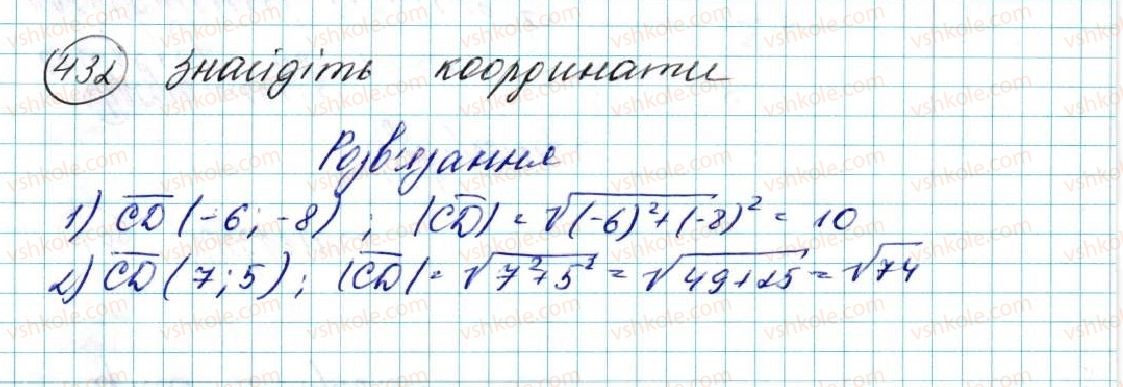 432 Знайдіть координати
Розв'язання
1) CD (-6; -8) ; |CD| = √(-6)²+(-8)² = 10
2) CD (7; 5) ; |CD| = √7²+5² = √49+25 = √74